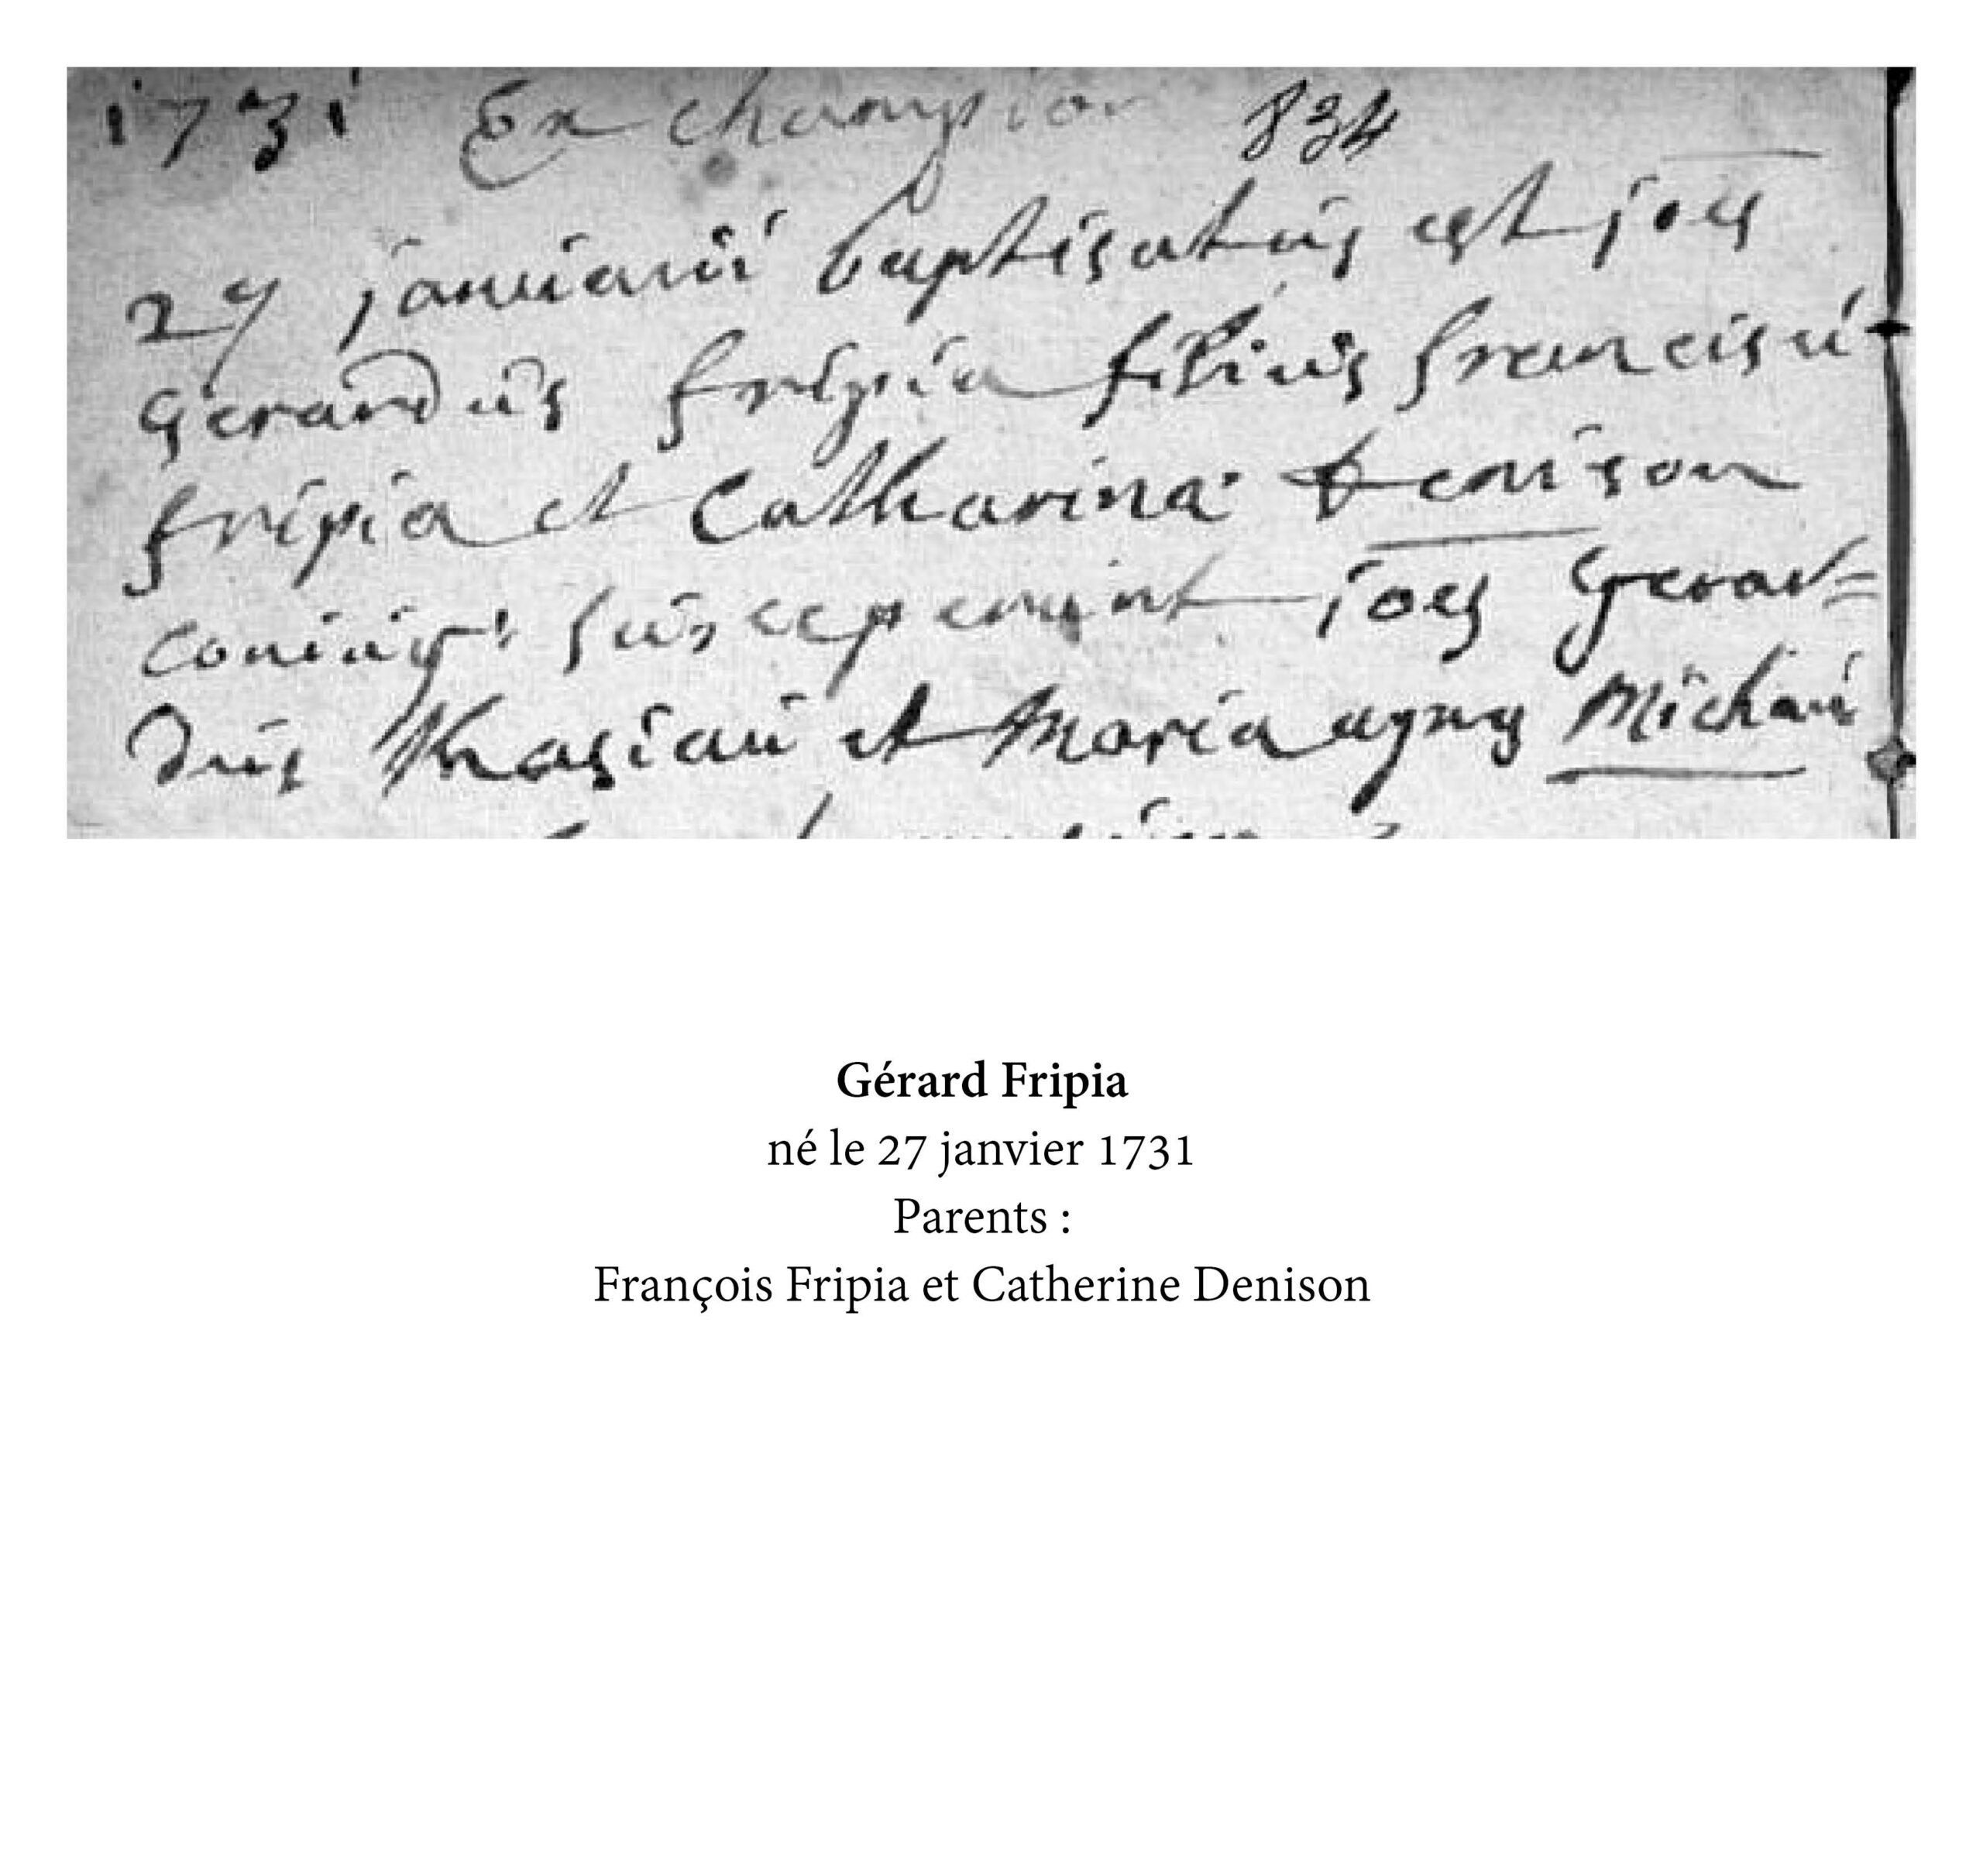 1731 Ex champion 834
27 januarii baptisatus est joes
Gerardus fripia filius francisci
fripia et Catharina Denison
coniug: susceperunt joes Gerar=
dus Thasiau et Maria agnes Michaui
Gérard Fripia
né le 27 janvier 1731
Parents :
François Fripia et Catherine Denison